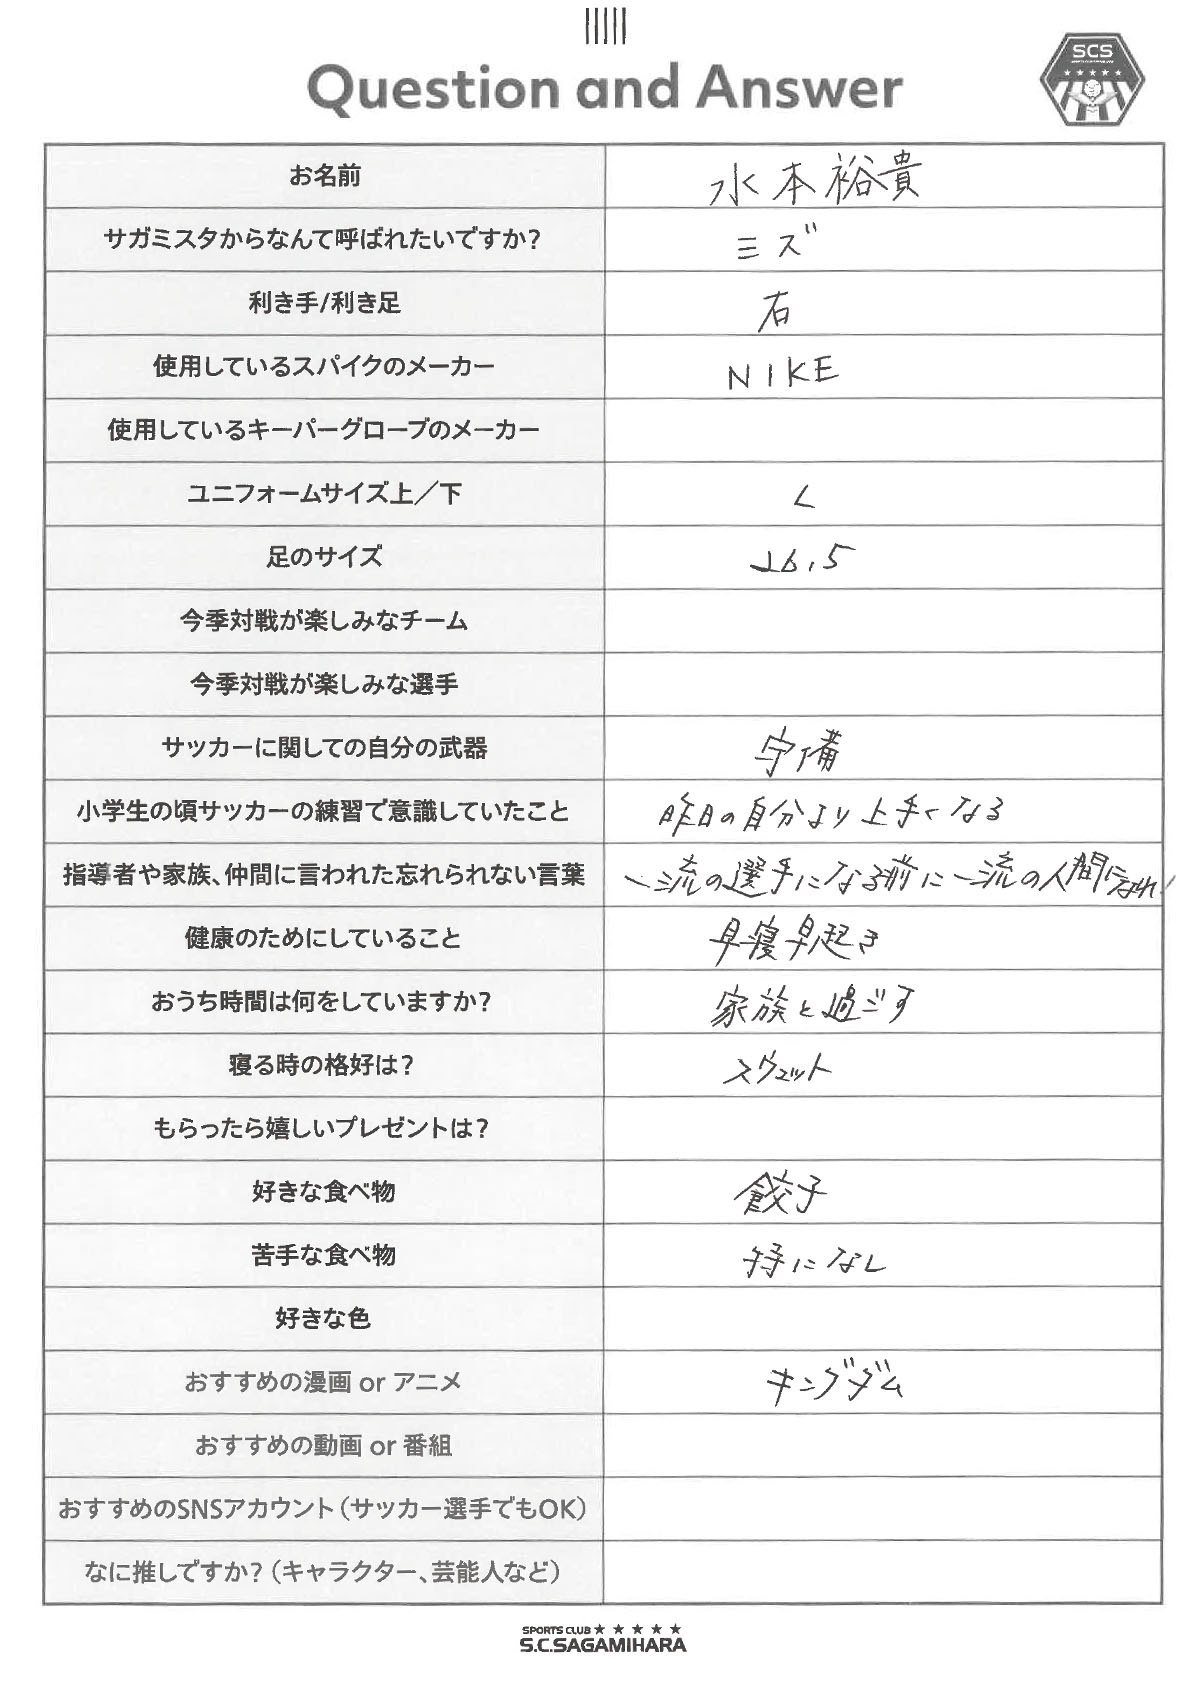 Question and Answer
SCS
お名前 水本裕貴
サガミスタからなんて呼ばれたいですか? ミズ
利き手/利き足 右
使用しているスパイクのメーカー NIKE
使用しているキーパーグローブのメーカー
ユニフォームサイズ上/下 L
足のサイズ 26.5
今季対戦が楽しみなチーム
今季対戦が楽しみな選手
サッカーに関しての自分の武器 守備
小学生の頃サッカーの練習で意識していたこと 昨日の自分より上手くなる
指導者や家族、仲間に言われた忘れられない言葉 一流の選手になる前に一流の人間になれ!
健康のためにしていること 早寝早起き
おうち時間は何をしていますか? 家族と過ごす
寝る時の格好は? スウェット
もらったら嬉しいプレゼントは?
好きな食べ物 餃子
苦手な食べ物 特になし
好きな色
おすすめの漫画 or アニメ キングダム
おすすめの動画 or 番組
おすすめのSNSアカウント(サッカー選手でもOK)
なに推しですか?(キャラクター、芸能人など)
SPORTS CLUB ★ ★ ★ ★ ★
S.C.SAGAMIHARA